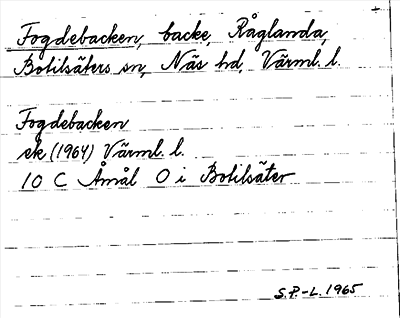 Fogdebacken, backe, Råglanda,
Botilsäters sn, Näs hd, Värml. l.
Fogdebacken
ek (1964) Värml. l.
10 C Åmål O i Botilsäter
S.P.-L. 1965